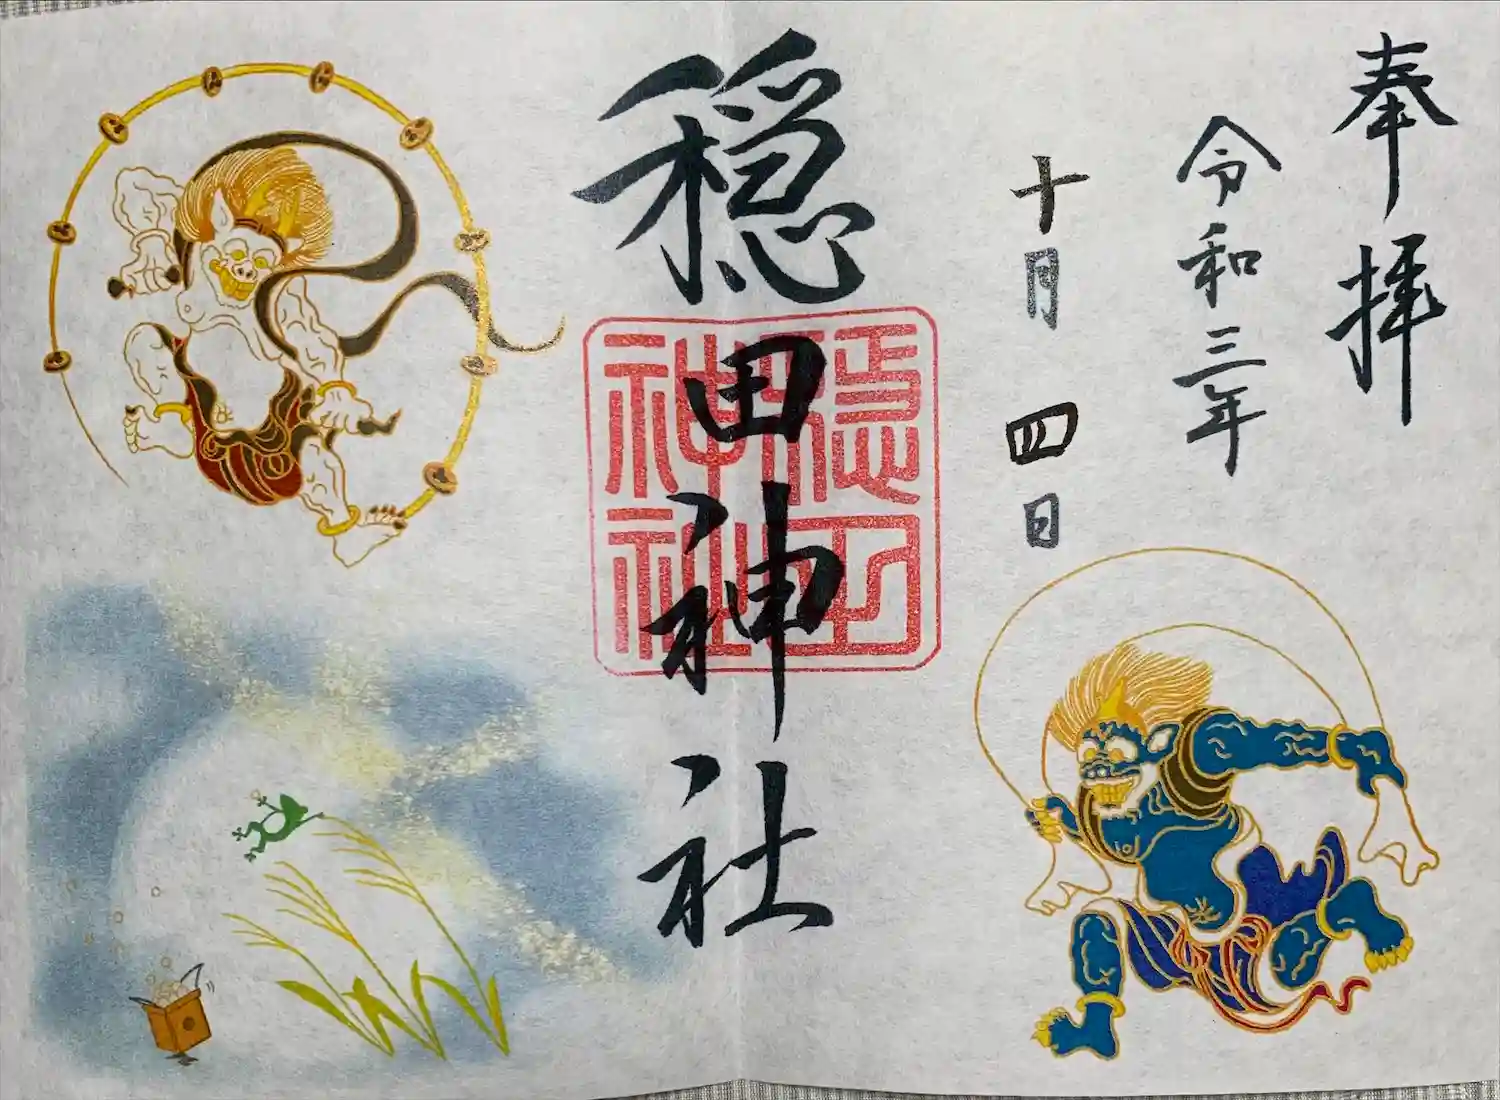 奉拝
令和三年
十月四日
穏田神社
穏田神社